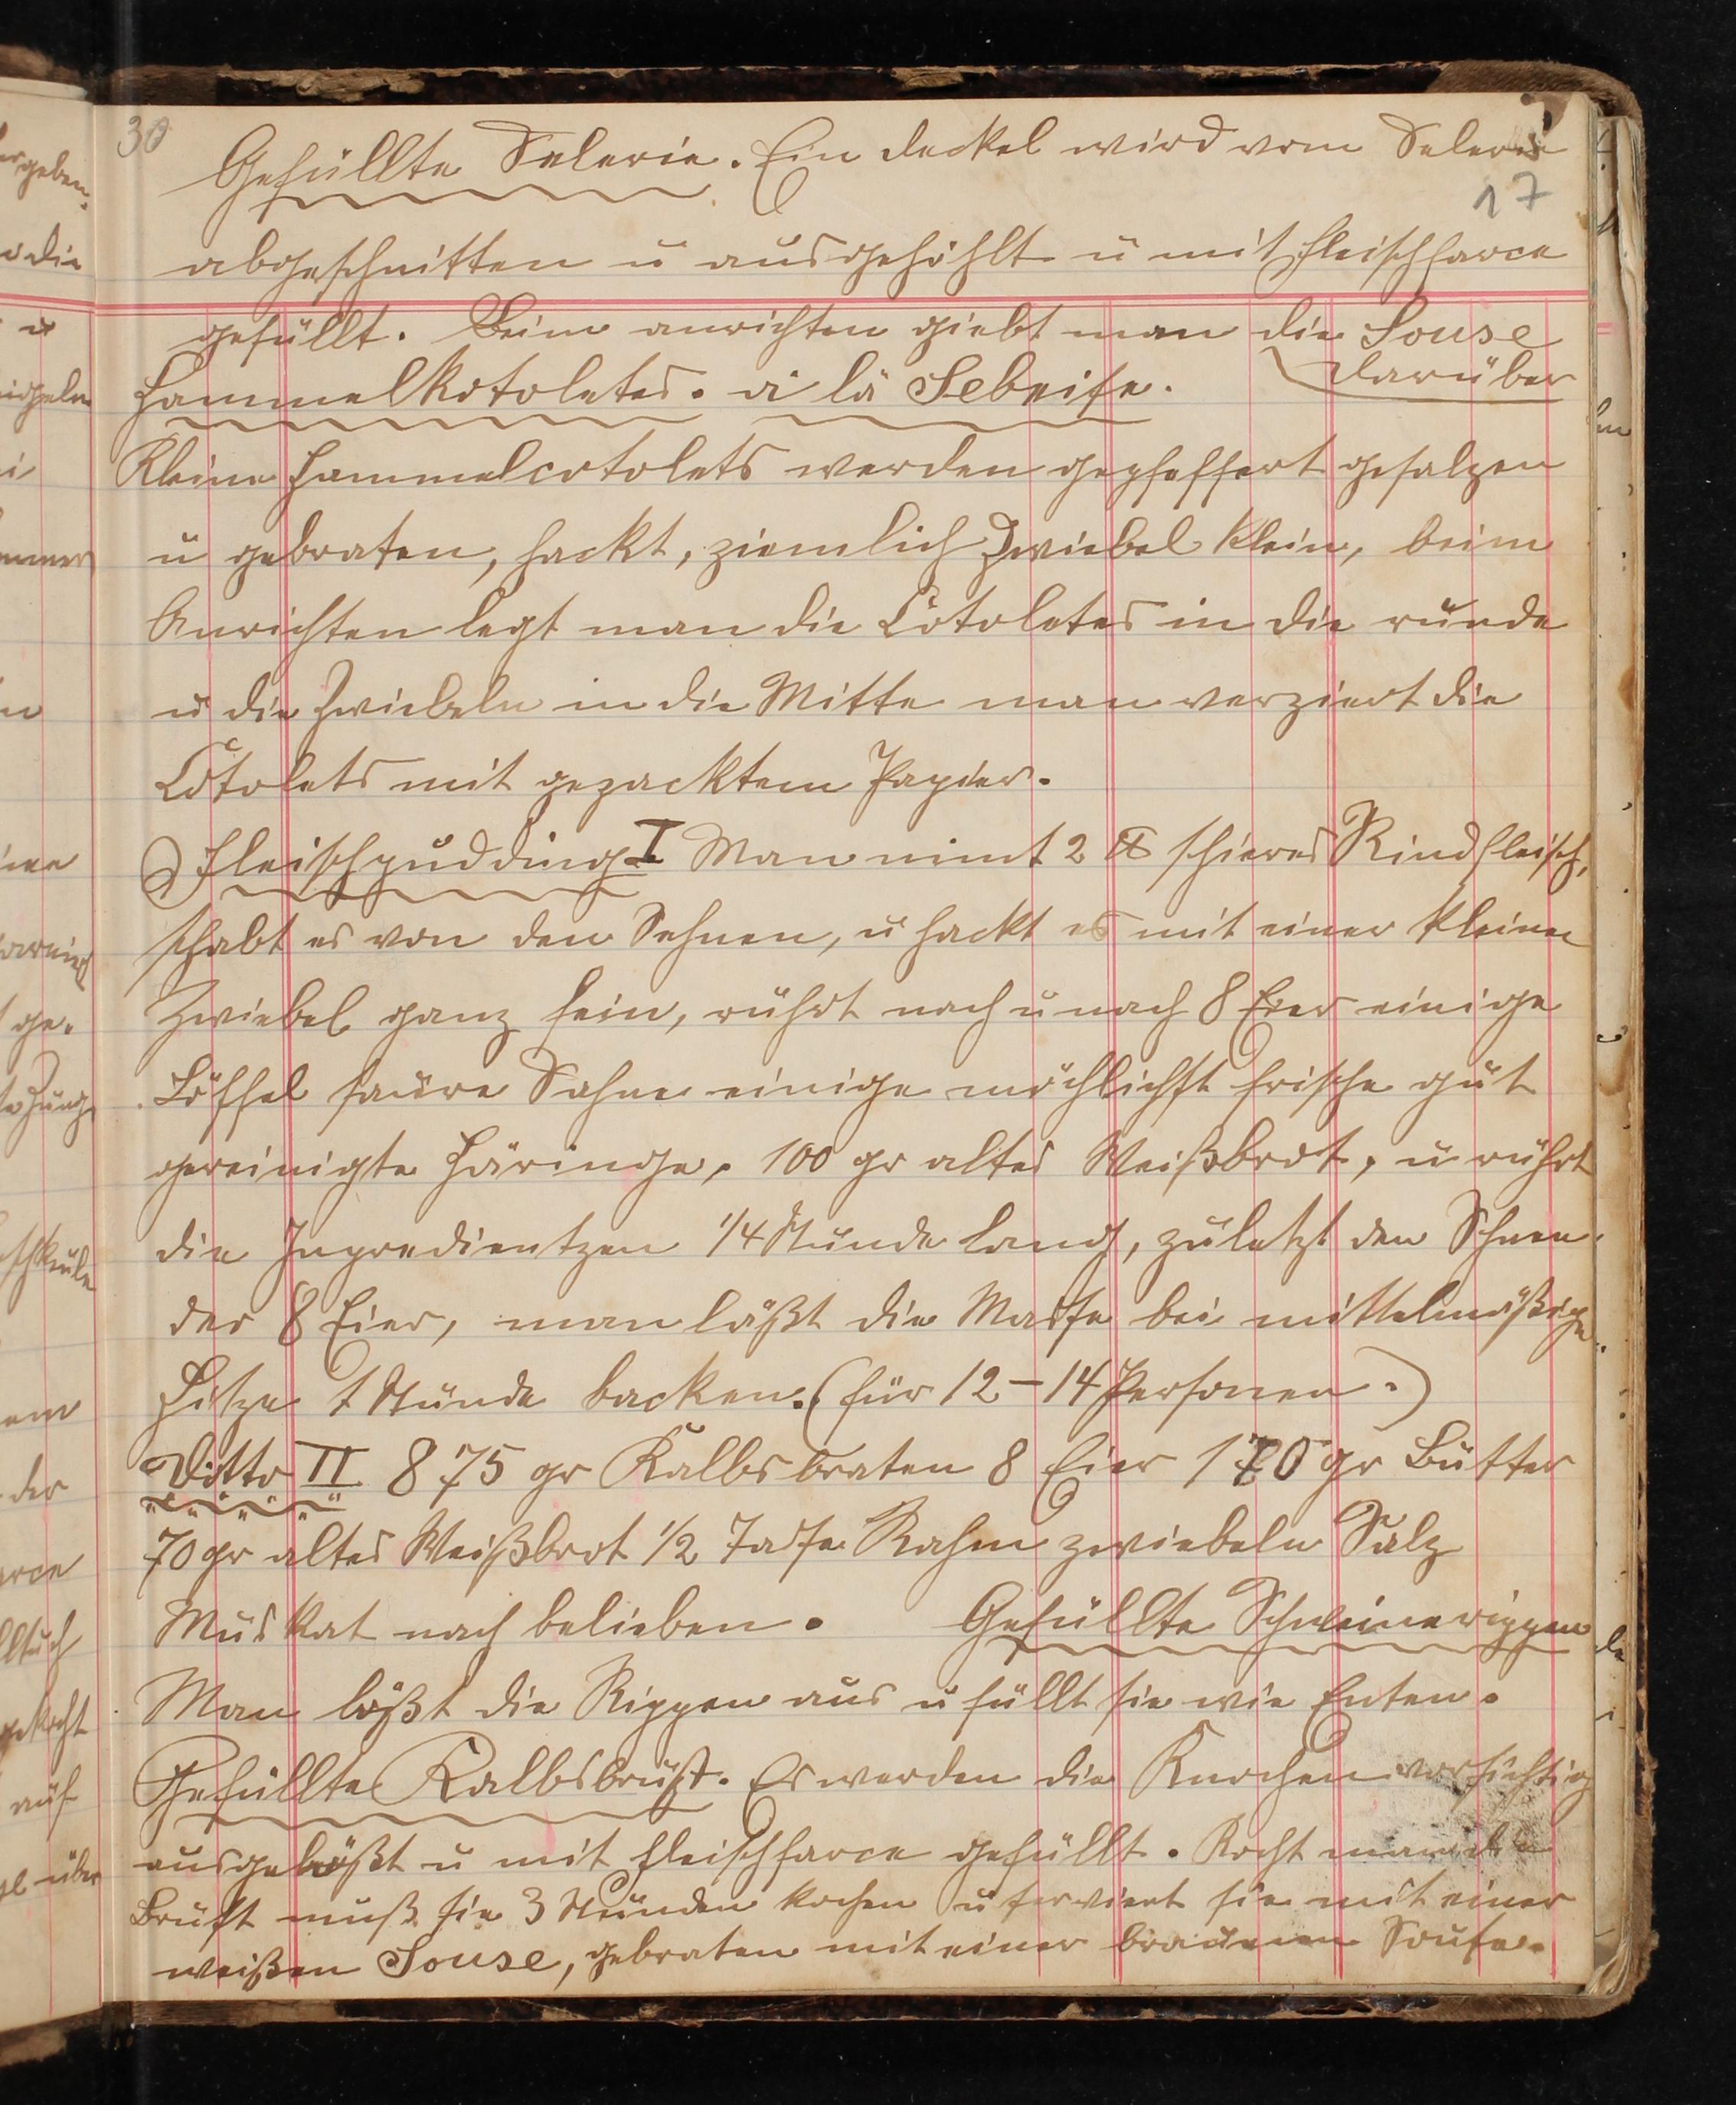 30
Gefüllte Selerie. Ein deckel wird vom Selerie
17
abgeschnitten u ausgehöhlt u mit Fleischfarce
gefüllt. Beim anrichten giebt man die Souse
darüber
Hammelkotoletes. a la Sebeise.
Kleine Hammelcotolets werden gepfeffert gesalzen
u gebraten, hackt, ziemlich Zwiebel klein, beim
Anrichten legt man die Cotoletes in die runde
u die Zwiebeln in die Mitte man verziert die
Cotolets mit gezacktem Papier.
Fleischpudding I Man nimt 2 ℔ schieres Rindfleisch,
schabt es von den Sehnen, u hackt es mit einer kleinen
Zwiebel ganz fein, rührt nach u nach 8 Eier einige
Löffel saure Sahne einige möchlichst frische gut
gereinigte Häringe, 100 gr altes Weißbrot, u rührt
die Ingredientzen 1/4 Stunde lang, zuletzt den Schnee
der 8 Eier, man läßt die Masse bei mittelmäßige
Hitze 1 Stunde backen. (für 12-14 Personen.)
Ditto II 875 gr Kalbsbraten 8 Eier 170 gr Butter
70 gr altes Weißbrot 1/2 Tasse Rahm zwiebeln Salz
Muskat nach belieben. Gefüllte Schweinerippen
Man lößt die Rippen aus u füllt sie wie Enten.
Gefüllte Kalbsbrust. Es werden die Knochen vorsichtig
ausgelößt u mit Fleischfarce gefüllt. Kocht man die
Brust muß sie 3 Stunden kochen u serviert sie mit einer
weißen Souse, gebraten mit einer braunen Souse.